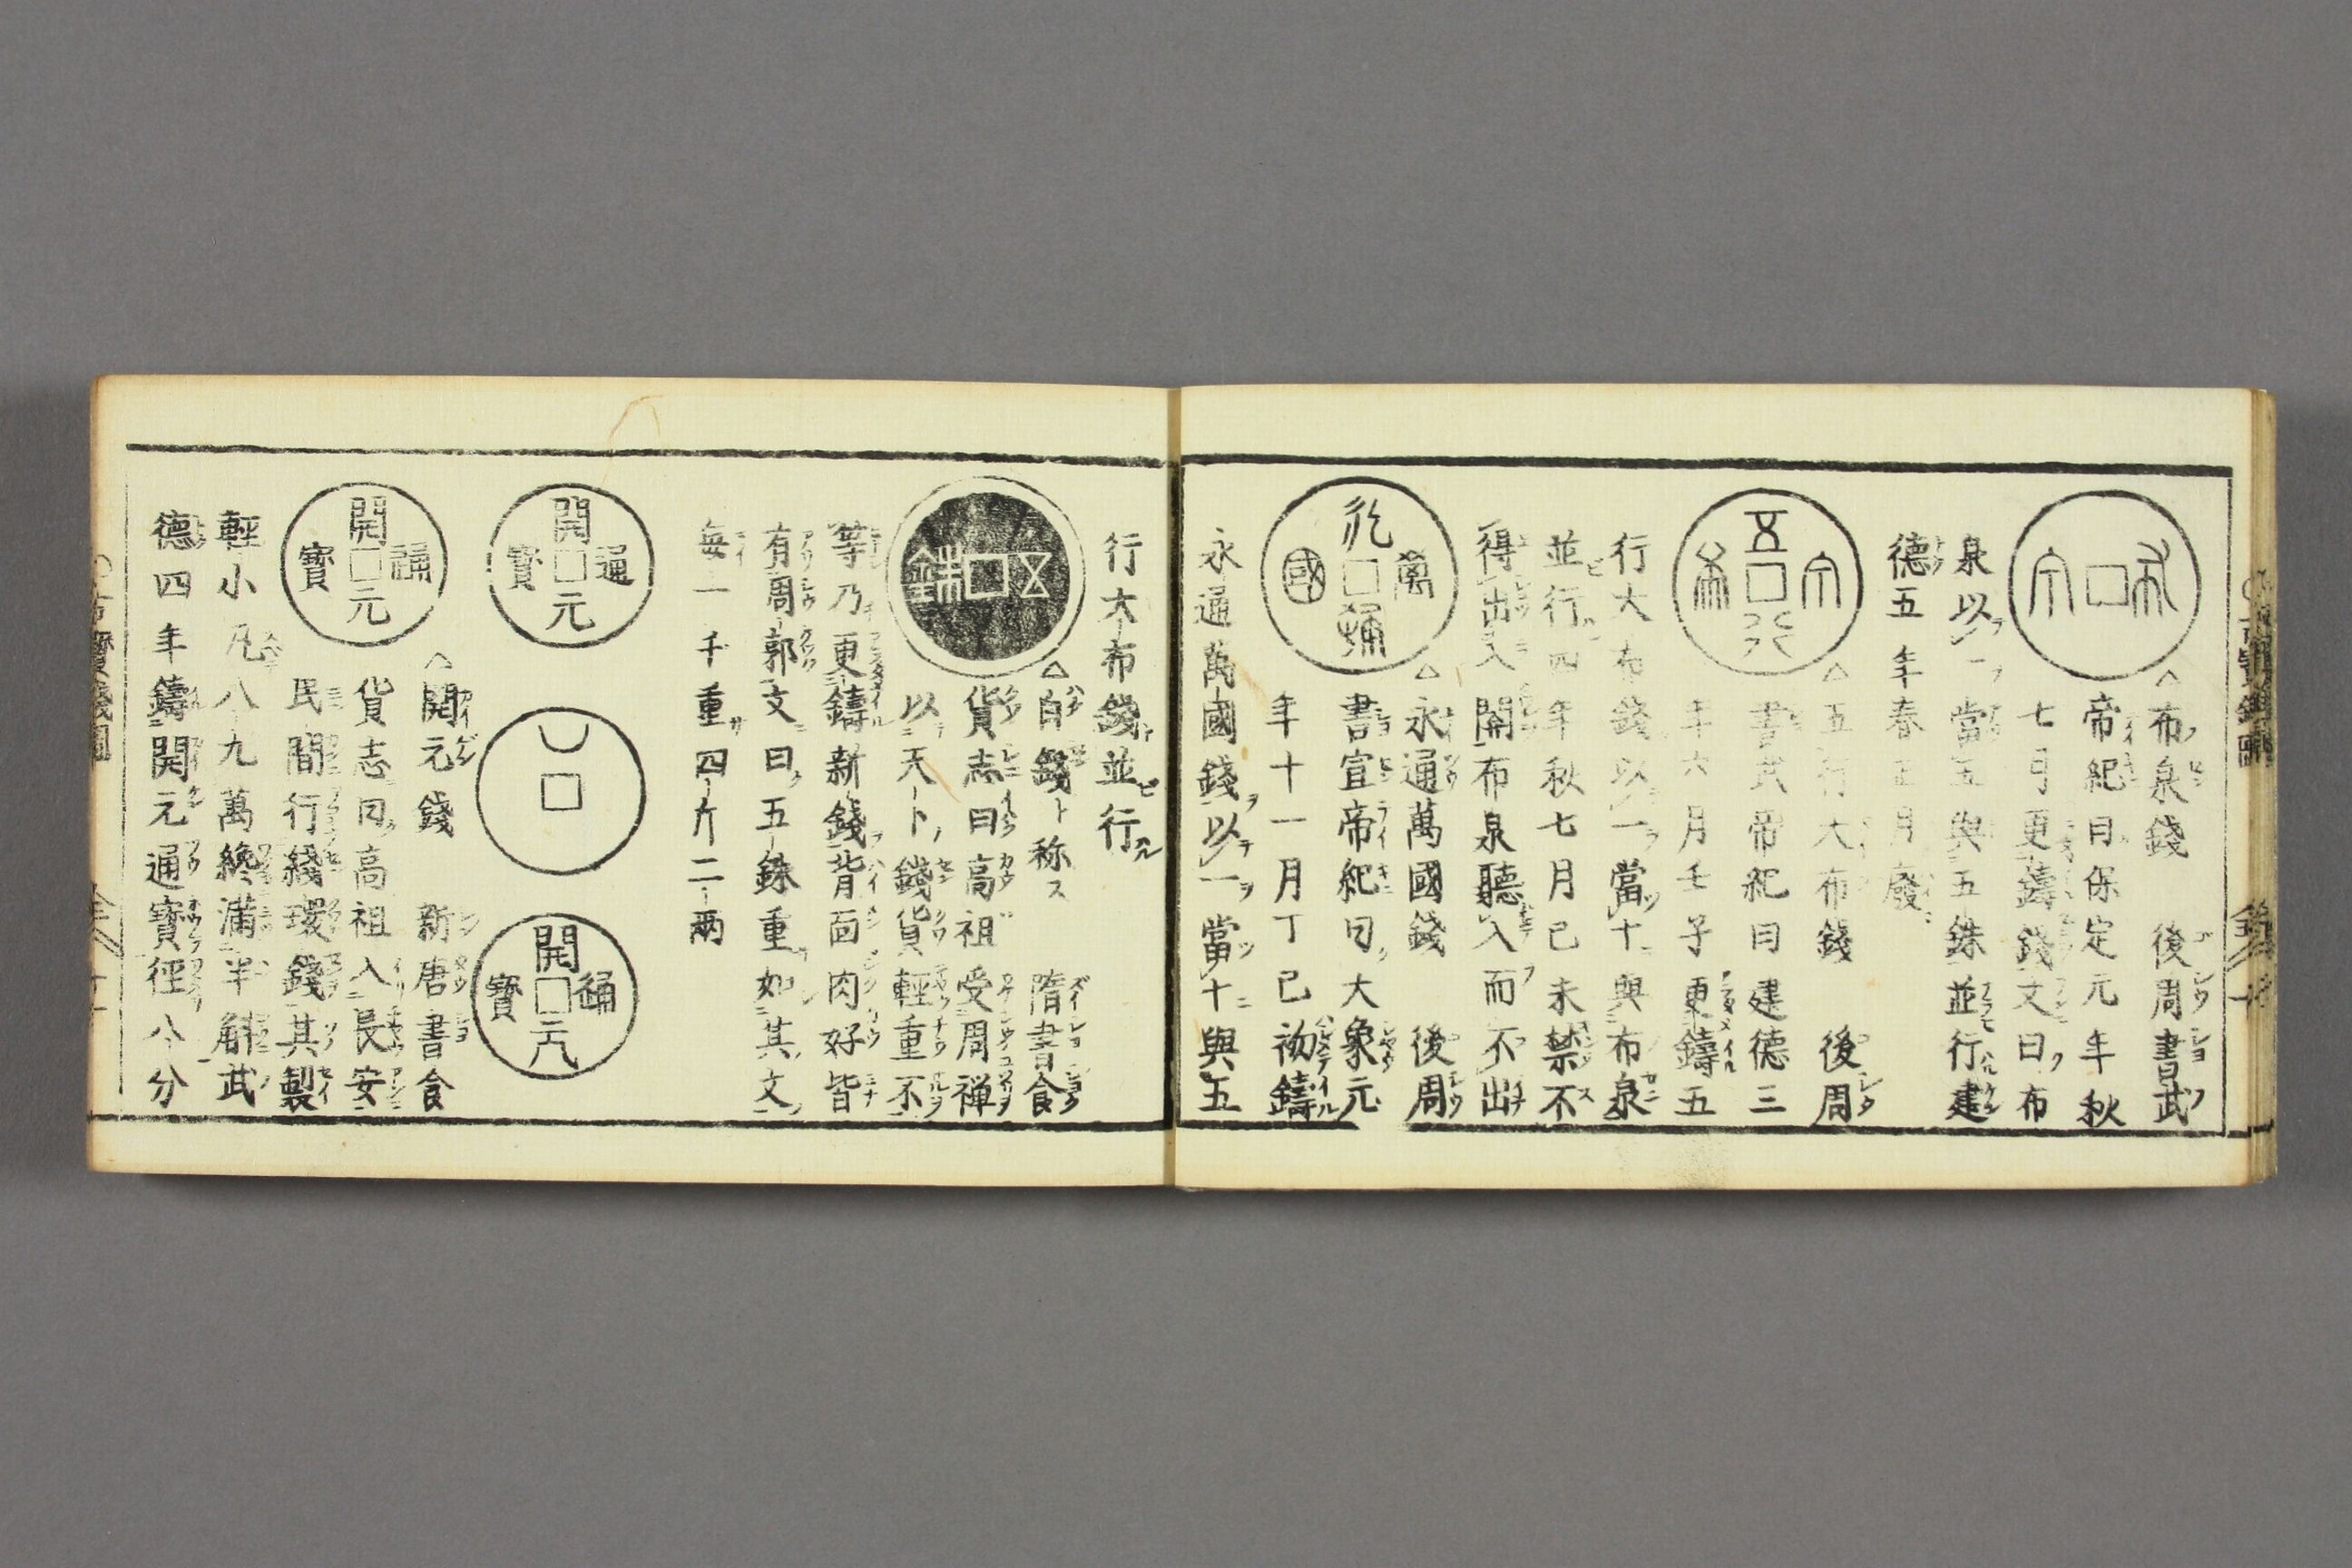 布泉
△布泉錢 後周書武
帝紀曰保定元年秋
七月更鑄錢文曰布
泉以一當五與五銖並行建
德五年春正月廢
五行大布
△五行大布錢 後周
書武帝紀曰建德三
年六月壬子更鑄五
行大布錢以一當十與布泉
並行四年秋七月己未禁不
得出入關布泉聽入而不出
永通萬國
△永通萬國錢 後周
書宣帝紀曰大象元
年十一月丁巳初鑄
永通萬國錢以一當十與五
行大布錢並行
五銖
△白錢ト称ス 隋書食
貨志曰高祖受周禅
以天下錢貨輕重不
等乃更鑄新錢背面肉好皆
有周郭文曰五銖重如其文
每一千重四斤二兩
開元通寶
開元通寶
開元通寶
△開元錢 新唐書食
貨志曰高祖入長安
民間行綫環錢其製
輕小凡八九萬纔滿半斛武
德四年鑄開元通寶徑八分